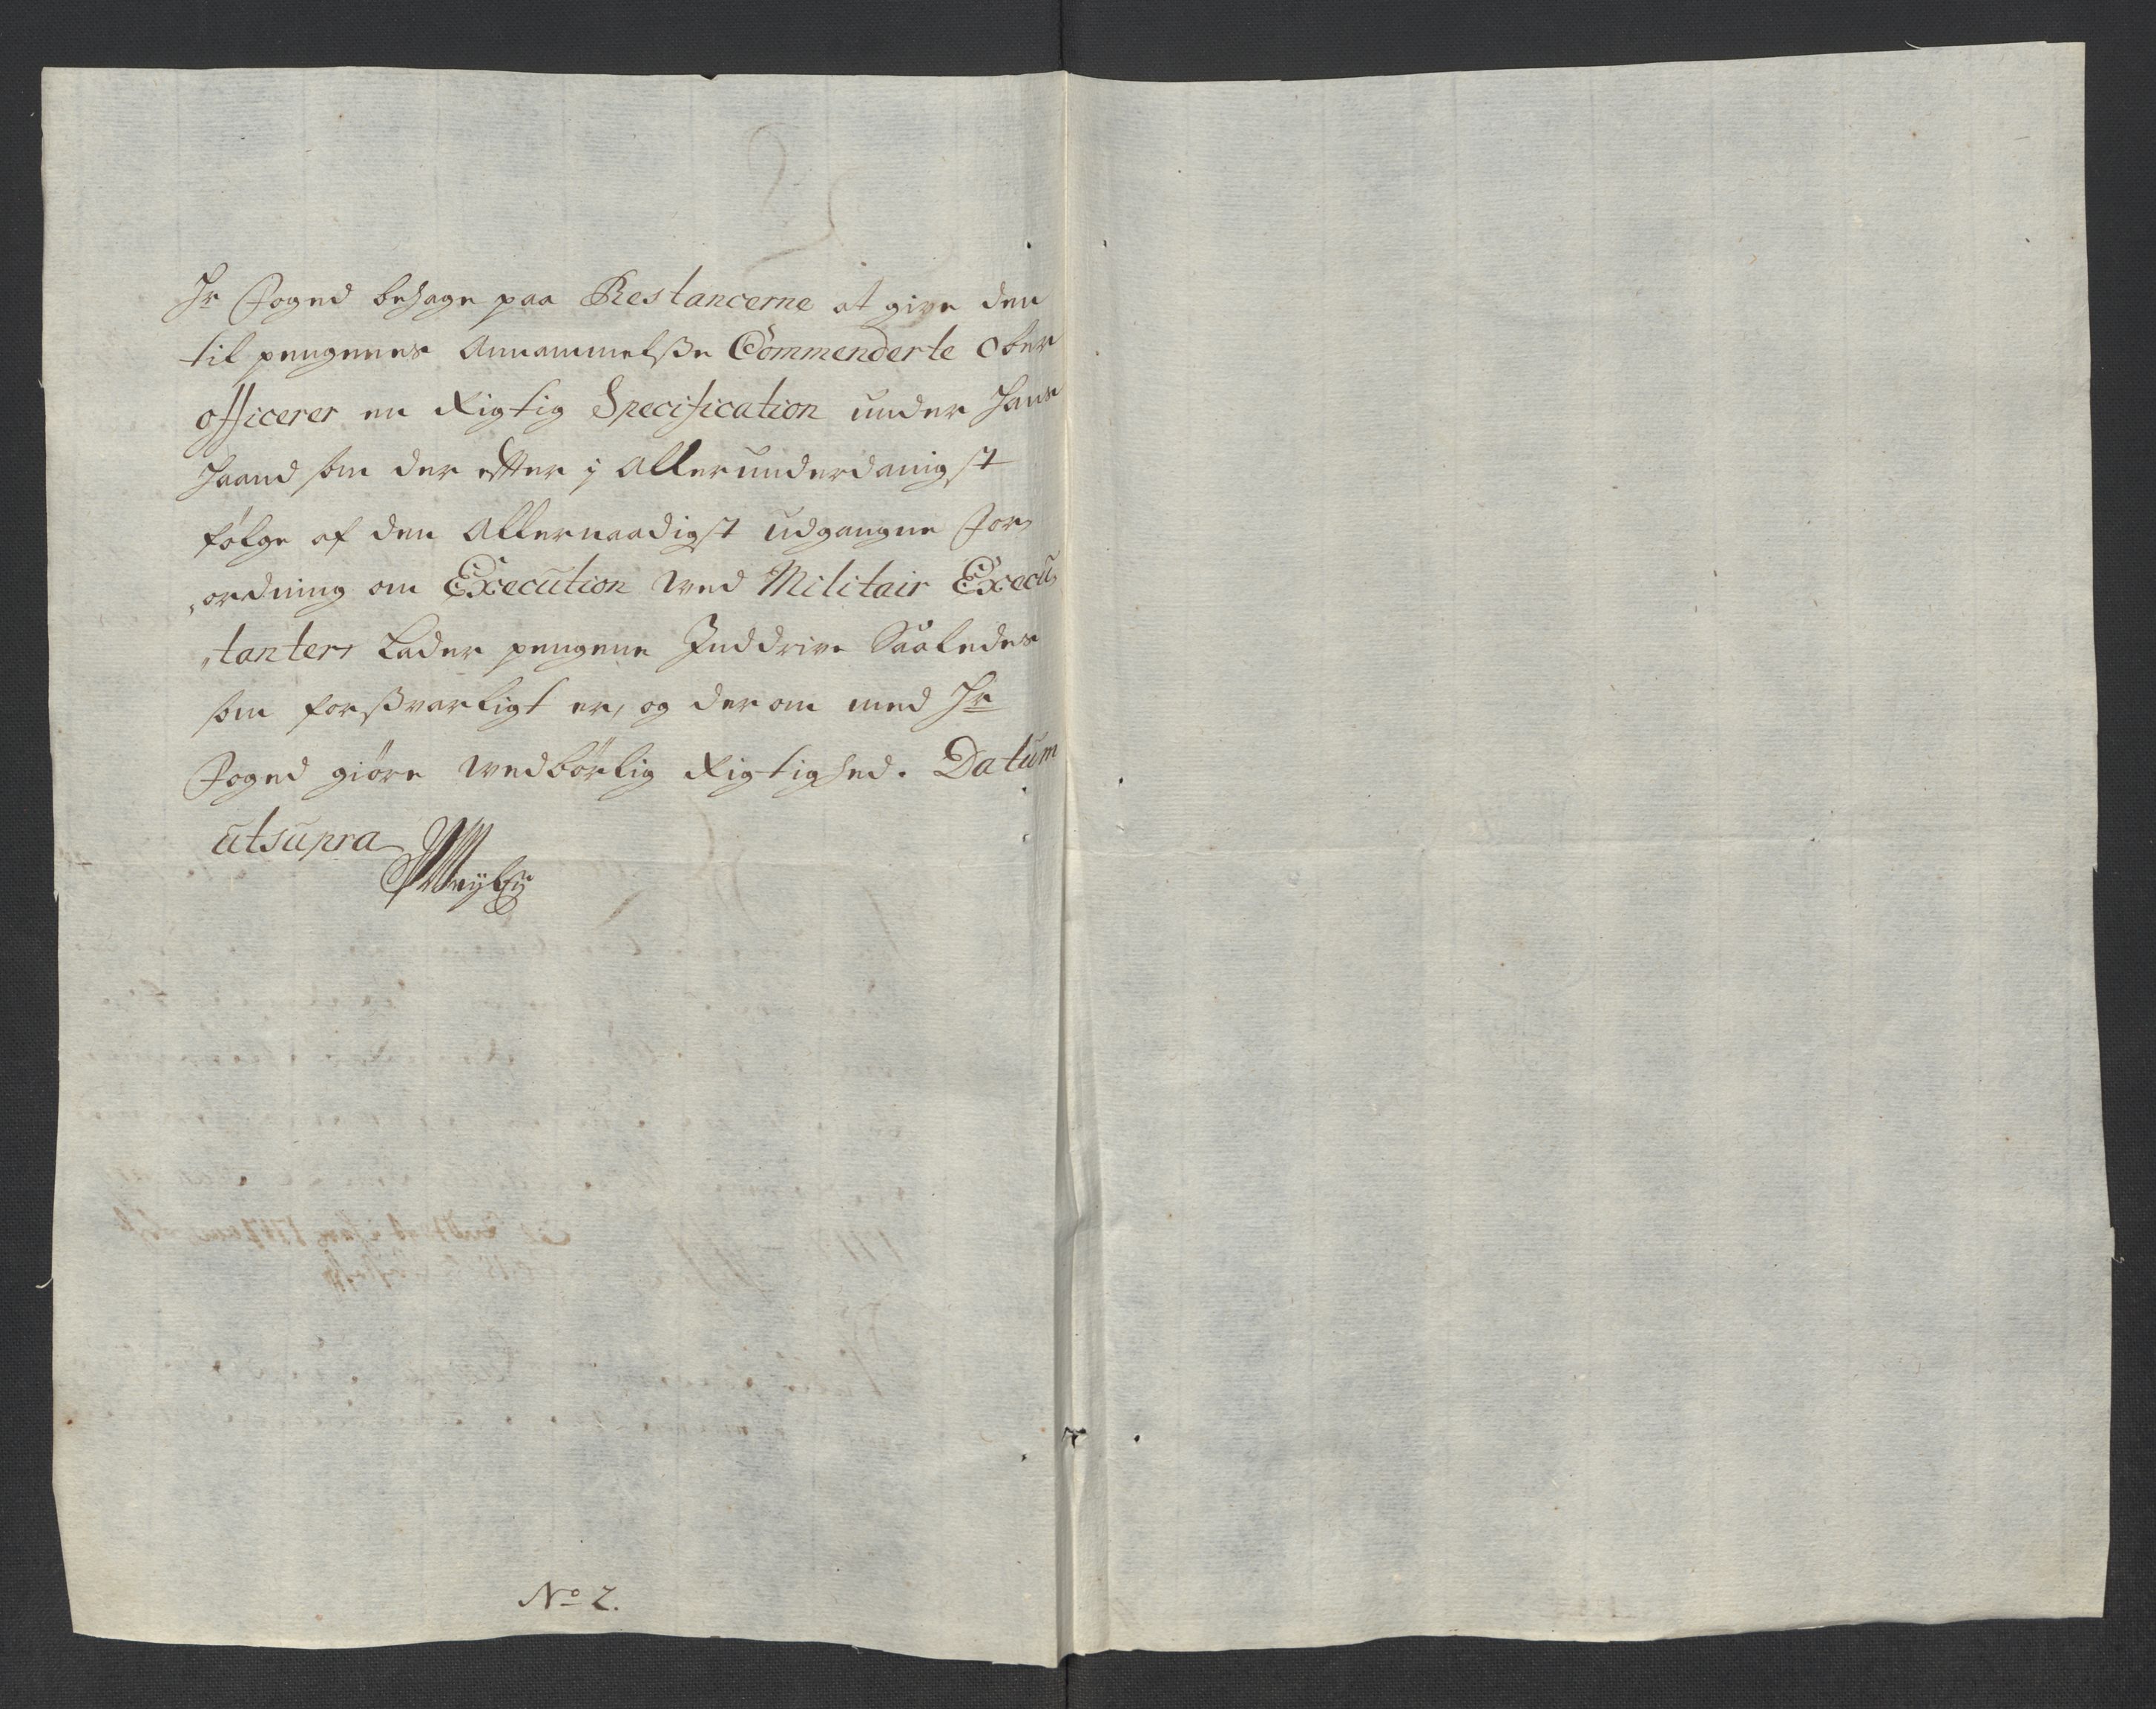 Hr Foged behage paa Restancerne at give den
til pengenes Annammelsse Commenderte Ober
officerer en Rigtig Specification under Hans
Haand som der efter j Allerunderdanigst
følge af den Allernaadigst udgangne For,
,ordning om Execution wed Militair Execu,
,tanter, Lader pengene Inddrive Saaledes
som forsvarligt er, og derom med Hr
Foged giøre wedbørlig Rigtighed. Datum
utsupra
No 2.